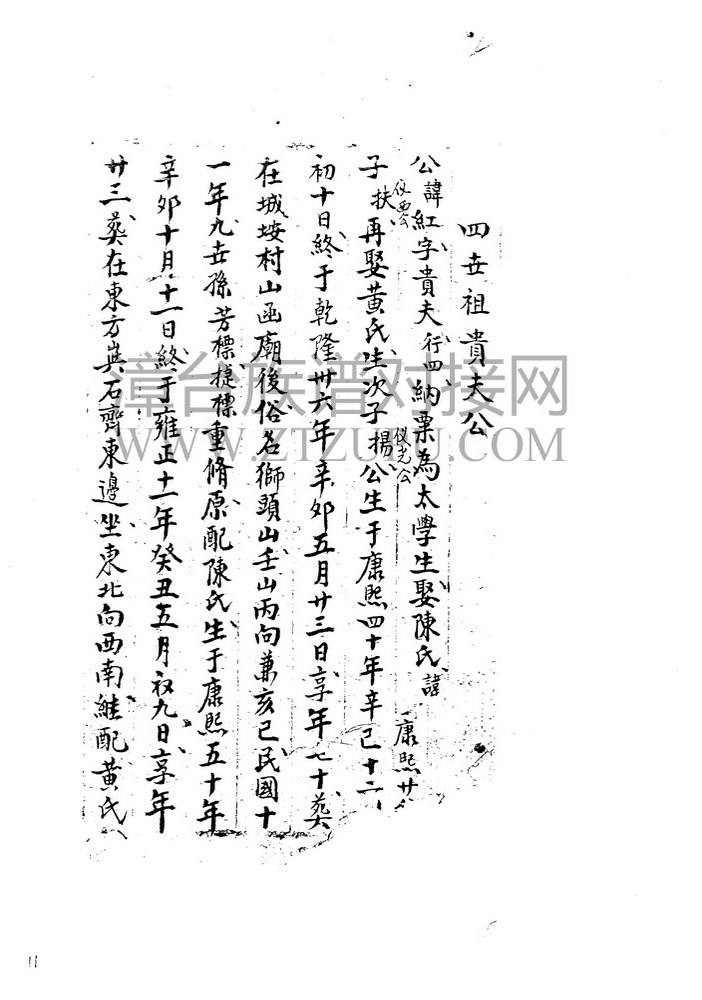 四世祖貴夫公
公諱紅字貴夫行四納粟為太學生娶陳氏諱
康熙廿
子扶再娶黃氏生次子揚公生于康熙四十年辛巳十二
仪西公
仪光公
初十日終于乾隆卅六年辛卯五月廿三日享年七十葬
在城垵村山函廟後俗名獅頭山壬山丙向兼亥巳民國十
一年九世孫芳標捷標重脩原配陳氏生于康熙五十年
辛卯十月十一日終于雍正十一年癸丑五月初九日享年
廿三葬在東方與石齊東邊坐東北向西南継配黃氏
漳台族谱对接网
WWW.ZTZUPU.COM
11